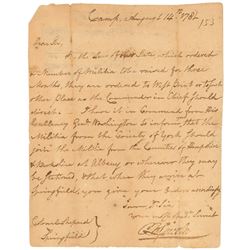 Camp, August 14th 1780
153
Dear Sir,
By the Law of the State, which ordered
a Number of Militia to be raised for three
Months, they are ordered to West Point or such
other Place as the Commander in Chief should
direct. I have it in Command from his
Excellency Genl Washington to inform, that the
Militia from the County of York should
join the Militia from the Counties of Hampshire
& Berkshire at Albany or wherever they may
be stationed, What when they arrive at
Springfield, you give your Orders accordingly
I am Dr Sir
your Servt
Springfield